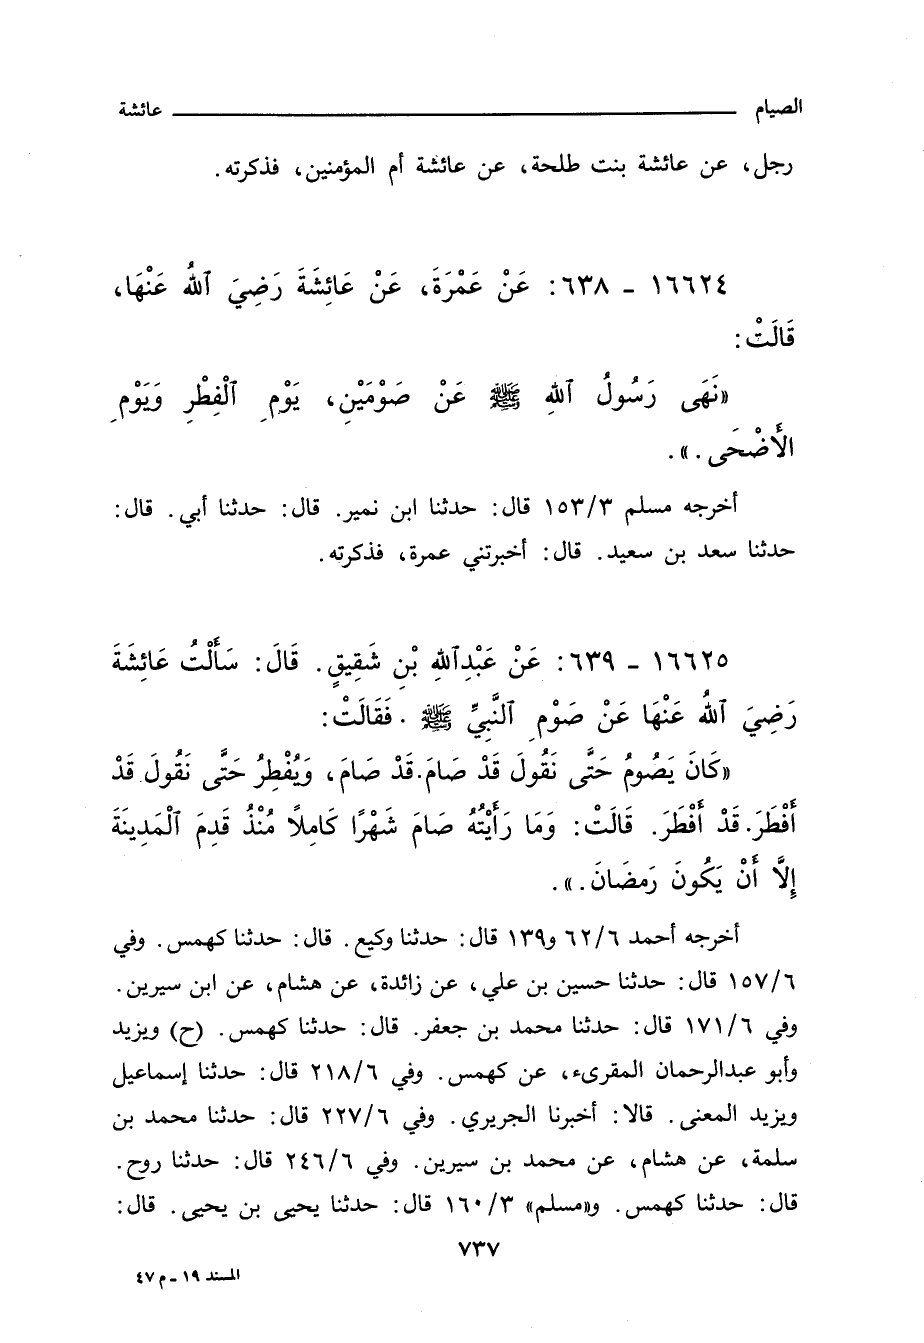 الصيام عائشة
رجل، عن عائشة بنت طلحة، عن عائشة أم المؤمنين، فذكرته.
١٦٦٢٤ - ٦٣٨: عَنْ عَمْرَةَ، عَنْ عَائِشَةَ رَضِيَ ٱللهُ عَنْهَا،
قَالَتْ:
«نَهَى رَسُولُ ٱللهِ ﷺ عَنْ صَوْمَيْنِ، يَوْمِ ٱلْفِطْرِ وَيَوْمِ
الأَضْحَى.».
أخرجه مسلم ١٥٣/٣ قال: حدثنا ابن نمير. قال: حدثنا أبي. قال:
حدثنا سعد بن سعيد. قال: أخبرتني عمرة، فذكرته.
١٦٦٢٥ - ٦٣٩: عَنْ عَبْدِٱللهِ بْنِ شَقِيقٍ. قَالَ: سَأَلْتُ عَائِشَةَ
رَضِيَ ٱللهُ عَنْهَا عَنْ صَوْمِ ٱلنَّبِيِّ ﷺ. فَقَالَتْ:
«كَانَ يَصُومُ حَتَّى نَقُولَ قَدْ صَامَ. قَدْ صَامَ، وَيُفْطِرُ حَتَّى نَقُولَ قَدْ
أَفْطَرَ. قَدْ أَفْطَرَ. قَالَتْ: وَمَا رَأَيْتُهُ صَامَ شَهْرًا كَامِلًا مُنْذُ قَدِمَ ٱلْمَدِينَةَ
إِلَّا أَنْ يَكُونَ رَمضَانَ.».
أخرجه أحمد ٦٢/٦ و١٣٩ قال: حدثنا وكيع. قال: حدثنا كهمس. وفي
١٥٧/٦ قال: حدثنا حسين بن علي، عن زائدة، عن هشام، عن ابن سيرين.
وفي ١٧١/٦ قال: حدثنا محمد بن جعفر. قال: حدثنا كهمس. (ح) ويزيد
وأبو عبدالرحمان المقرىء، عن كهمس. وفي ٢١٨/٦ قال: حدثنا إسماعيل
ويزيد المعنى. قالا: أخبرنا الجريري. وفي ٢٢٧/٦ قال: حدثنا محمد بن
سلمة، عن هشام، عن محمد بن سيرين. وفي ٢٤٦/٦ قال: حدثنا روح.
قال: حدثنا كهمس. و«مسلم» ١٦٠/٣ قال: حدثنا يحيى بن يحيى. قال:
٧٣٧
المسند ١٩ - م ٤٧